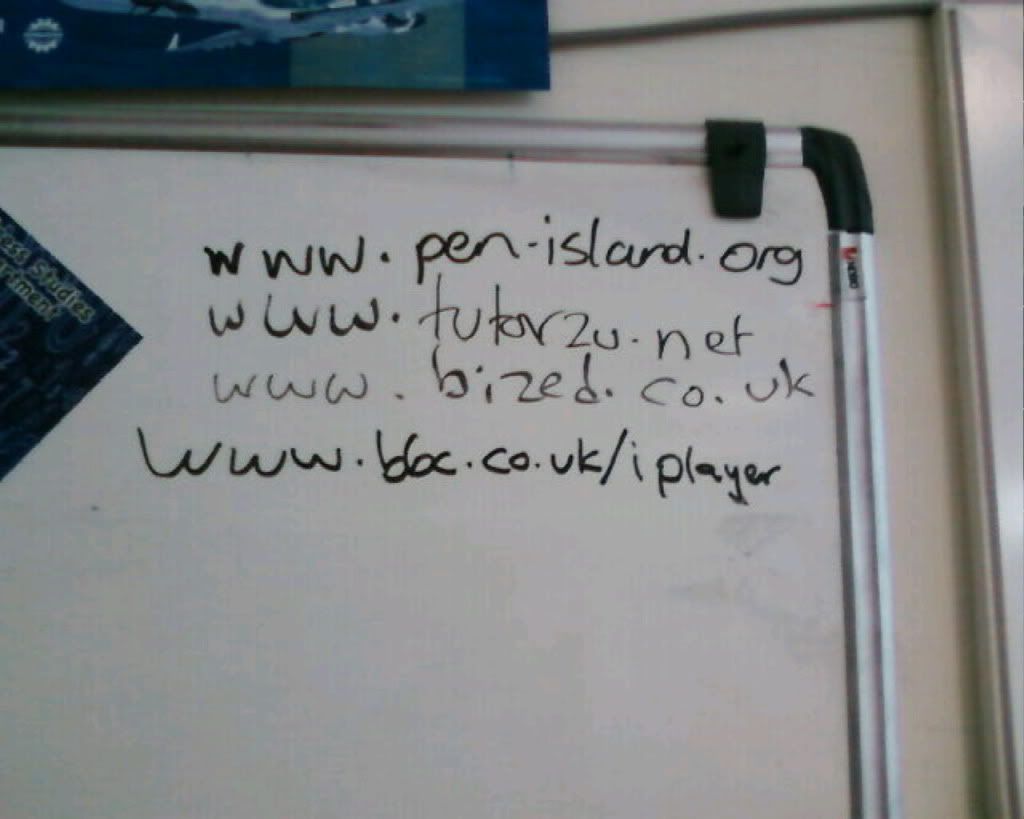 www.pen-island.org
www.tutor2u.net
www.bized.co.uk
www.bbc.co.uk/iplayer
Studies